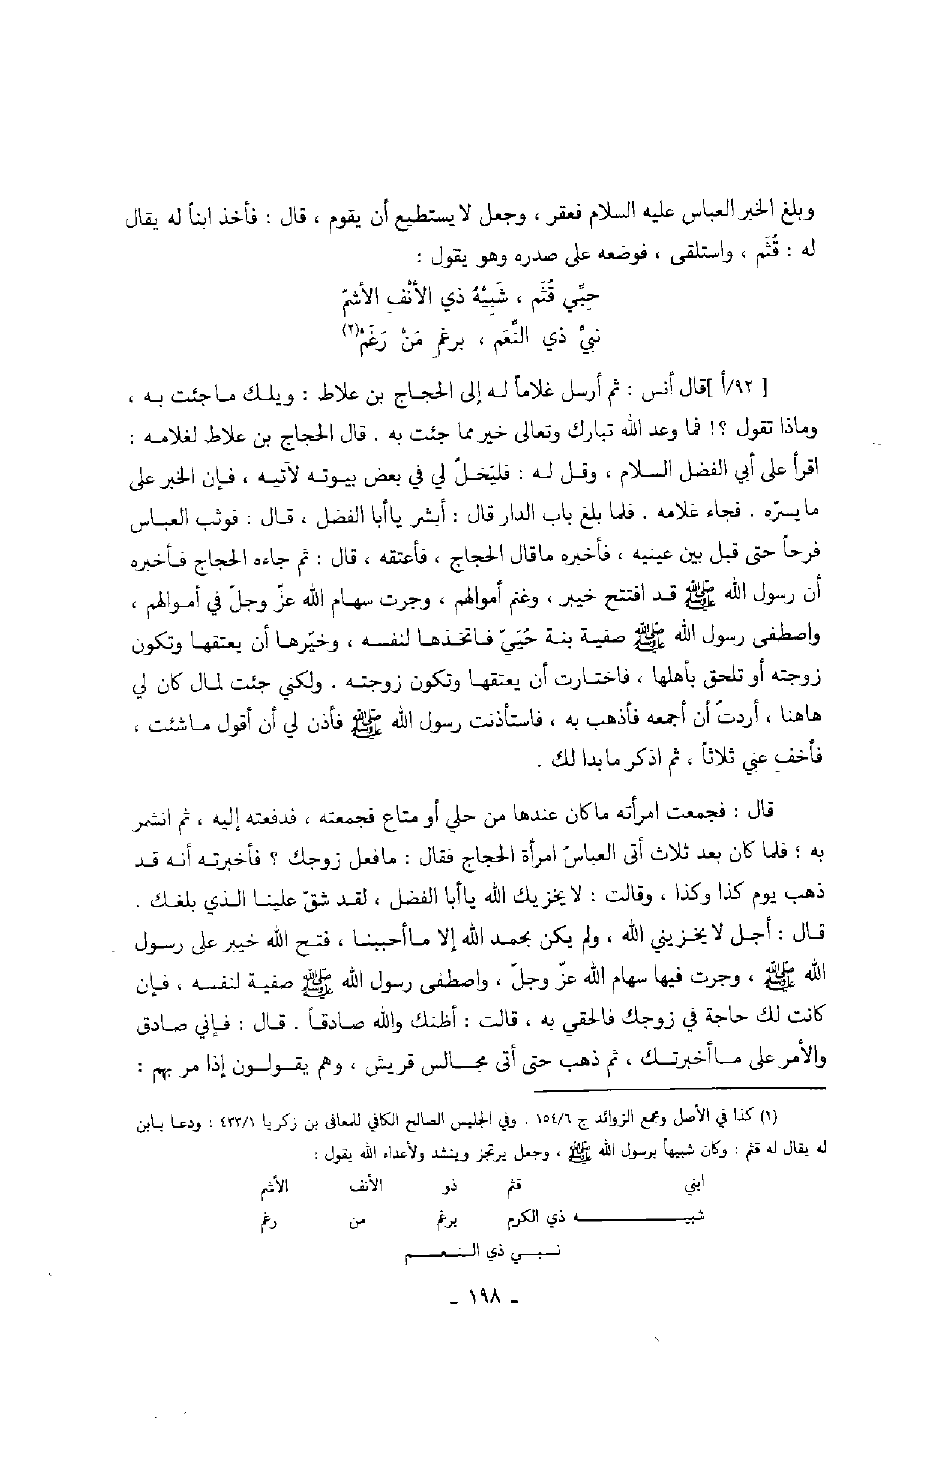 وبلغ الخبر العباس عليه السلام فعقر ، وجعل لا يستطيع أن يقوم ، قال : فأخذ ابناً له يقال
له : قُثَم ، واستلقى ، فوضعه على صدره وهو يقول :
حِبِّي قُثَم ، شَبِيْهُ ذي الأنْفِ الأشمّ
نبيُّ ذي النَّعَم ، برغم مَنْ رَغَمْ(٢)
[ ٩٢/أ ]قال أنس : ثم أرسل غلاماً له إلى الحجاج بن علاط : ويلك ماجئت به ،
وماذا تقول ؟! فما وعد الله تبارك وتعالى خير مما جئت به . قال الحجاج بن علاط لغلامه :
اقرأ على أبي الفضل السلام ، وقل له : فليَخلُ لي في بعض بيوته لآتيه ، فإن الخبر على
مايسرّه . فجاء غلامه . فلما بلغ باب الدار قال : أبشر ياأبا الفضل ، قال : فوثب العباس
فرحاً حتى قبل بين عينيه ، فأخبره ماقال الحجاج ، فأعتقه ، قال : ثم جاءه الحجاج فأخبره
أن رسول الله ﷺ قد افتتح خيبر ، وغنم أموالهم ، وجرت سهام الله عزّ وجلّ في أموالهم ،
واصطفى رسول الله ﷺ صفية بنة حُيَيّ فاتخذها لنفسه ، وخيّرها أن يعتقها وتكون
زوجته أو تلحق بأهلها ، فاختارت أن يعتقها وتكون زوجته . ولكني جئت لمال كان لي
هاهنا ، أردتُ أن أجمعه فأذهب به ، فاستأذنت رسول الله ﷺ فأذن لي أن أقول ماشئت ،
فأخفِ عني ثلاثاً ، ثم اذكر مابدا لك .
قال : فجمعت امرأته ماكان عندها من حلي أو متاع فجمعته ، فدفعته إليه ، ثم انشمر
به ؛ فلما كان بعد ثلاث أتى العباسُ امرأة الحجاج فقال : مافعل زوجك ؟ فأخبرته أنه قد
ذهب يوم كذا وكذا ، وقالت : لا يخزيك الله ياأبا الفضل ، لقد شقّ علينا الذي بلغك .
قال : أجل لا يخزيني الله ، ولم يكن بحمد الله إلا ماأحببنا ، فتح الله خيبر على رسول
الله ﷺ ، وجرت فيها سهام الله عزّ وجلّ ، واصطفى رسول الله ﷺ صفية لنفسه ، فإن
كانت لك حاجة في زوجك فالحقي به ، قالت : أظنك والله صادقاً . قال : فإني صادق
والأمر على ماأخبرتك ، ثم ذهب حتى أتى مجالس قريش ، وهم يقولون إذا مر بهم :
(١) كذا في الأصل ومجمع الزوائد ج ١٥٤/٦ . وفي الجليس الصالح الكافي للمعافى بن زكريا ٤٣٣/١ : ودعا بابن
له يقال له قثم : وكان شبيهاً برسول الله ﷺ ، وجعل يرتجز وينشد ولأعداء الله يقول :
ابني قثم ذو الأنف الأشم
شبيه ذي الكرم برغم من رغم
نبي ذي النعم
- ١٩٨ -